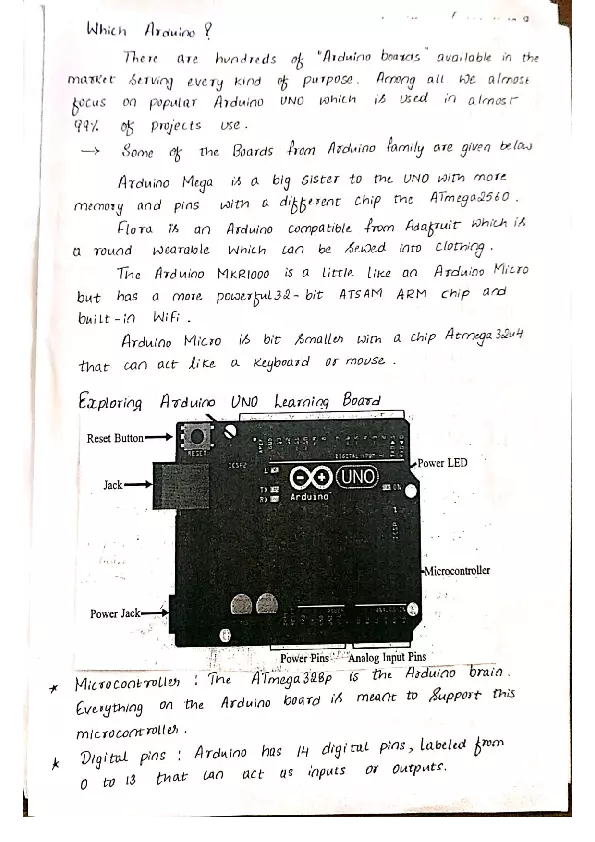 Which Arduino ?
There are hundreds of "Arduino boards" available in the
market serving every kind of purpose. Among all we almost
focus on popular Arduino UNO which is used in almost
99% of projects use.
→ Some of the Boards from Arduino family are given below
Arduino Mega is a big sister to the UNO with more
memory and pins with a different chip the ATmega2560.
Flora is an Arduino compatible from Adafruit which is
a round wearable which can be sewed into clothing.
The Arduino MKR1000 is a little like an Arduino Micro
but has a more powerful 32-bit ATSAM ARM chip and
built-in WiFi.
Arduino Micro is bit smaller with a chip Atmega32u4
that can act like a Keyboard or mouse.
Exploring Arduino UNO Learning Board
Reset Button
RESET
ICSP2
DIGITAL INPUT
Power LED
Jack
L
UNO
ON
TX
RX
Arduino
ICSP
Microcontroller
Power Jack
POWER
ANALOG IN
Power Pins
Analog Input Pins
* Microcontroller : The ATmega328p is the Arduino brain.
Everything on the Arduino board is meant to support this
microcontroller.
* Digital pins : Arduino has 14 digital pins, labeled from
0 to 13 that can act as inputs or outputs.